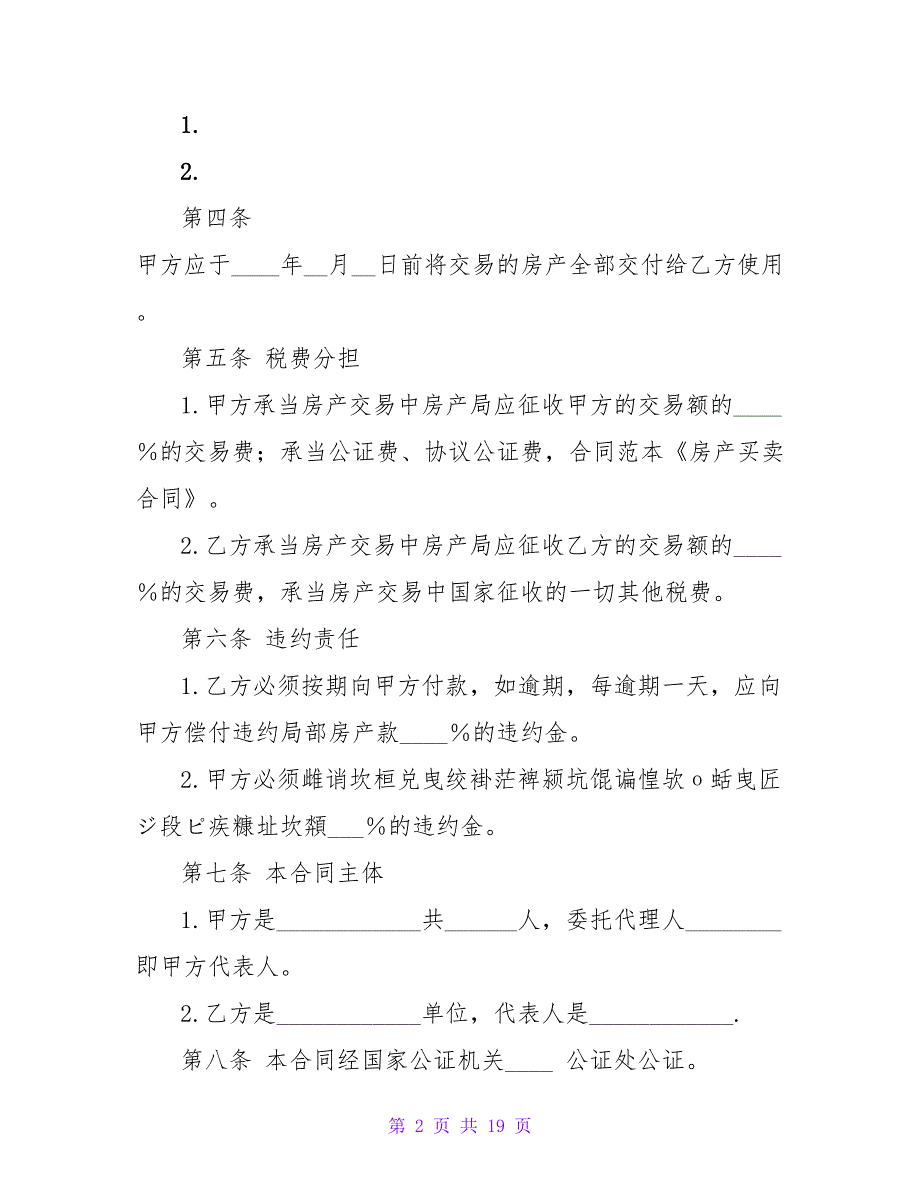 1.
2.
第四条
甲方应于____年__月__日前将交易的房产全部交付给乙方使用
。
第五条 税费分担
1.甲方承当房产交易中房产局应征收甲方的交易额的____
%的交易费；承当公证费、协议公证费，合同范本《房产买卖
合同》。
2.乙方承当房产交易中房产局应征收乙方的交易额的____
%的交易费，承当房产交易中国家征收的一切其他税费。
第六条 违约责任
1.乙方必须按期向甲方付款，如逾期，每逾期一天，应向
甲方偿付违约局部房产款____%的违约金。
2.甲方必须雌诮坎桓兑曳绞褂茫裨颍坑馄谝惶欤ο蛞曳匠
ジ段ピ疾糠址坎纇___%的违约金。
第七条 本合同主体
1.甲方是____________共______人，委托代理人________
即甲方代表人。
2.乙方是____________单位，代表人是____________.
第八条 本合同经国家公证机关____ 公证处公证。
第 2 页 共 19 页